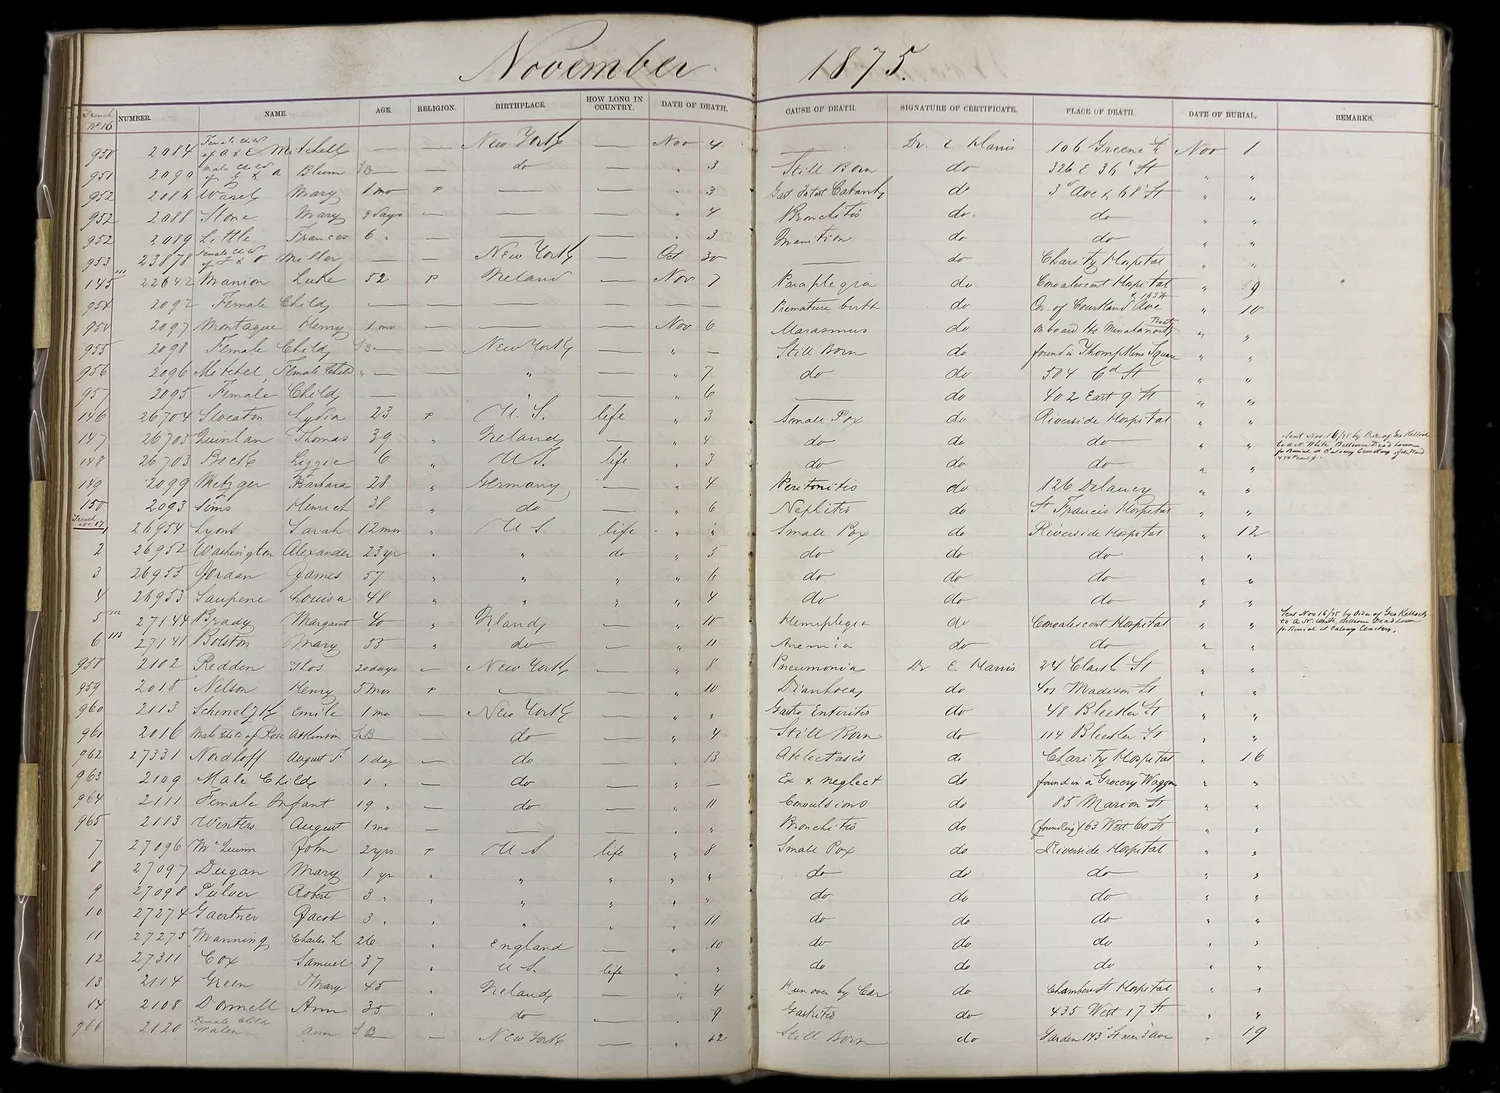 November 1875.
Trench No 16 NUMBER. NAME AGE. RELIGION. BIRTHPLACE. HOW LONG IN COUNTRY. DATE OF DEATH. CAUSE OF DEATH. SIGNATURE OF CERTIFICATE. PLACE OF DEATH. DATE OF BURIAL. REMARKS.
950 2084 Female child of A & E Mitchell — — New York — Nov 4 — Dr. E Harris 106 Greene St Nov 1
951 2090 Male Child of & a Blum SB — do — " 3 Still Born do 326 E. 36 St " "
952 2086 Mary 1 mo P — — " 3 Gast Intest Catarrh do 3d Ave & 68 St " "
952 2088 Stone Mary 9 days — — — " 4 Bronchitis do. do " "
952 2089 Little Frances 6 " — — — " 3 Inanition do do " "
953 23878 Female child of Miller — — New York — Oct 30 — do Charity Hospital " "
145 22642 Manion Luke 52 P Ireland — Nov 7 Paraplegia do Convalescent Hospital " 9
954 2092 Female Child — — — — — Premature birth do Cor. of Courtland Ave & 163 St " 10
954 2097 Montague Henry 1 mo — — — Nov 6 Marasmus do on board the Minnehanock Boat " "
955 2098 Female Child SB — New York — " — Still Born do found in Thompkins Square " "
956 2096 Mitchel Female Child " — " — " 7 do do 504 6th St " "
957 2095 Female Child — — " — " 6 — do 402 East 9 St " "
146 26704 Sweaton Lydia 23 P U. S. life " 3 Small Pox do Riverside Hospital " "
147 26705 Quinlan Thomas 39 " Ireland — " 4 do do do " " Sent Nov 16/75 by Order of Geo Kellock to A. W. White Bellevue Dead House for Burial at Calvary Cemetery
148 26703 Beck Lizzie 6 " U S. life " 3 do do do " "
149 2099 Metzger Barbara 28 " Germany — " 4 Peritonitis do 126 Delancy " "
150 2093 Sims Henrich 38 " do — " 6 Nephitis do St Francis Hospital " "
Trench No 17 26954 Lyons Sarah 12 mos " U S life " " Small Pox do Riverside Hospital " 12
2 26952 Washington Alexander 23 yr " " do " 5 do do do " "
3 26955 Jordan James 57 " " " " 6 do do do " "
4 26953 Saupene Louisa 48 " " " " 4 do do do " "
5 27144 Brady Margaret 40 " Irland — " 10 Hemiplegia do Convalescent Hospital " " Sent Nov 16/75 by Order of Geo Kellock to A. W. White Bellevue Dead House for Burial at Calvary Cemetery.
6 27141 Bolston Mary 55 " do — " 11 Anemia do do " "
958 2102 Redden Thos 20 days — New York — " 8 Pneumonia Dr E. Harris 24 Clark St " "
959 2018 Nelson Henry 5 mos P — — " 10 Diarrhoea do 401 Madison St " "
960 2113 Emile 1 mo — New York — " " Gastro Enteritis do 48 Bleeker St " "
961 2016 Male Child of Rose Atkinson SB do — " 4 Still Born do 114 Bleeker St " "
962 27331 Nordhoff August F 1 day — do — " 13 Atelectasis do Charity Hospital " 16
963 2109 Male Child 1 " do — " — Ex & neglect do found in a Grocery Waggon " "
964 2111 Female Infant 19 " — do — " 11 Convulsions do 85 Marion St " "
965 2113 Winters August 1 mo — — — " " Bronchitis do (foundling) 63 West 60 St " "
7 27096 McQuinn John 2 yrs P U S life " 8 Small Pox do Riverside Hospital " "
8 27097 Dugan Mary 1 yr " " " " " do do do " "
9 27098 Pulver Robert 3 " " " " " " do do do " "
10 27274 Gaertner Jacob 3 " " " " " 11 do do do " "
11 27275 Manning Charles L 26 " England — " 10 do do do " "
12 27311 Cox Samuel 37 " U S. life " " do do do " "
13 2114 Green Mary 45 " Ireland — " 4 Run over by Car do Chambers St Hospital " "
14 2108 Donnell Ann 35 " do — " 9 Gastritis do 435 West 17 St " "
966 2120 Female Child Ann SB — New York — " 12 Still Born do Garden 143 St near 3 Ave " 19